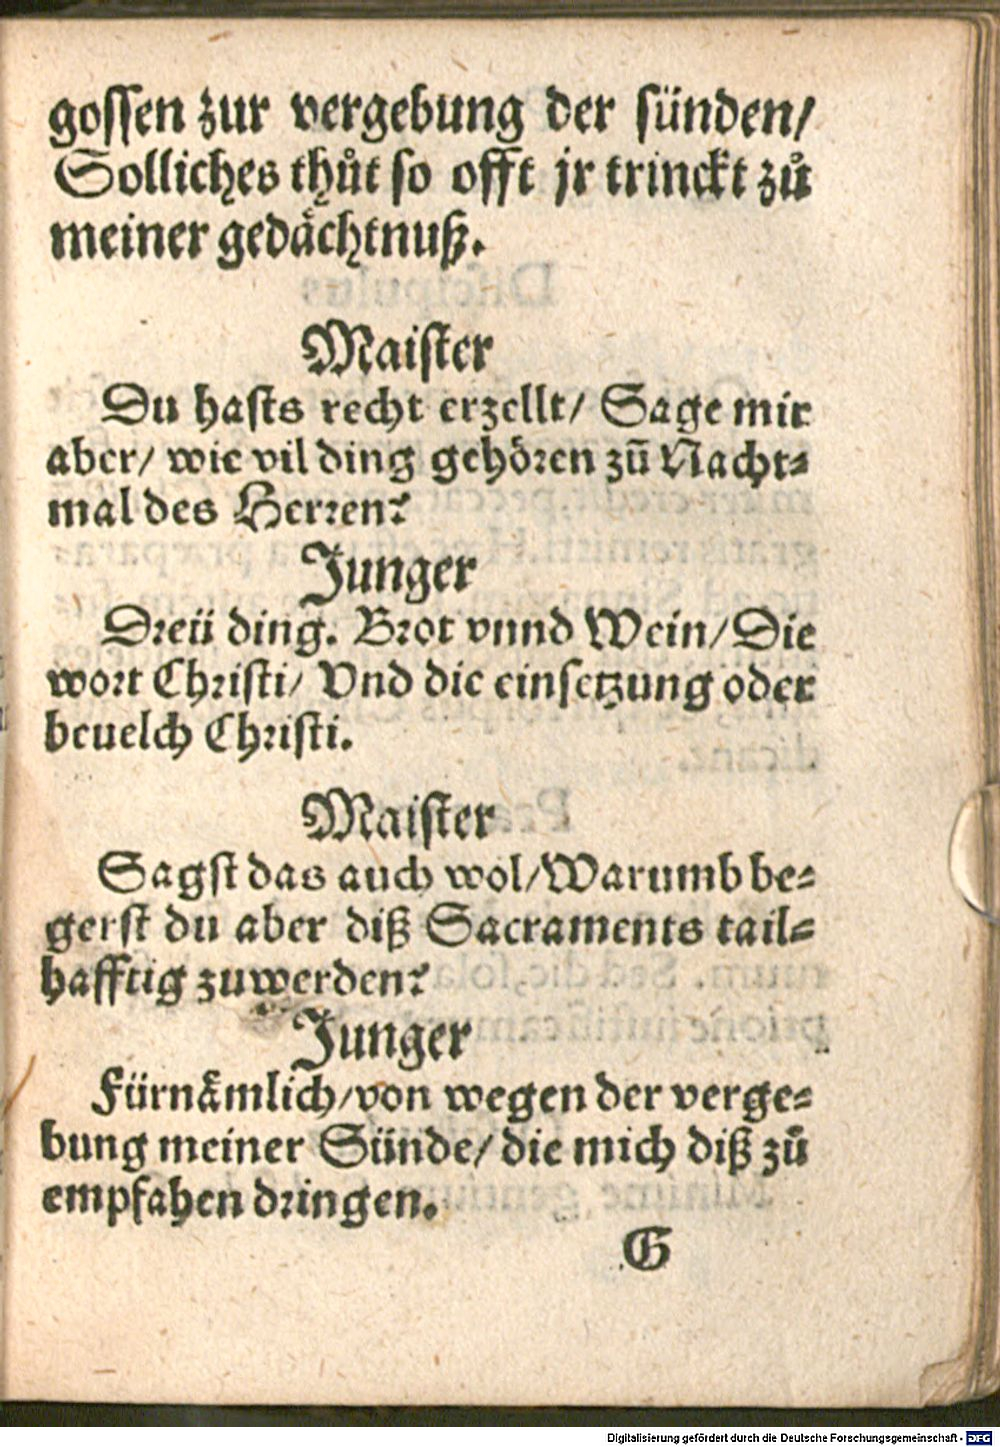 gossen zur vergebung der sünden/
Solliches thůt so offt jr trinckt zů
meiner gedächtnuß.
Maister
Du hasts recht erzellt/ Sage mir
aber/ wie vil ding gehören zů̄ Nacht⸗
mal des Herren?
Junger
Dreii ding. Brot vnnd Wein/ Die
wort Christi/ Vnd die einsetzung oder
beuelch Christi.
Maister
Sagst das auch wol/ Warumb be⸗
gerst du aber diß Sacraments tail⸗
hafftig zuwerden?
Junger
Fürnämlich/ von wegen der verge⸗
bung meiner Sünde/ die mich diß zů
empfahen dringen.
G
Digitalisierung gefördert durch die Deutsche Forschungsgemeinschaft - DFG